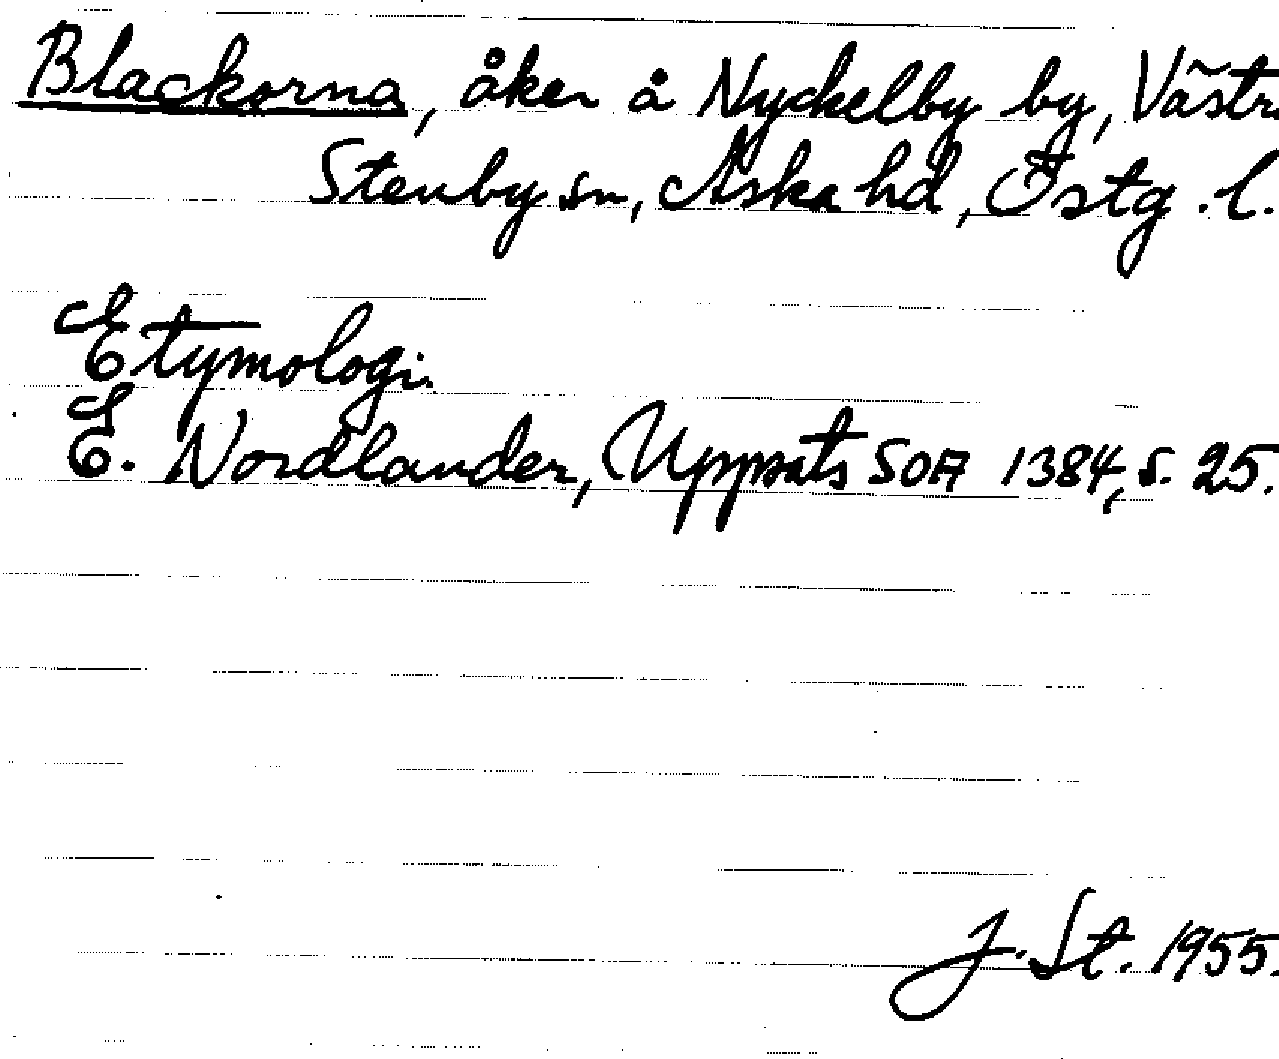 Blackorna, åker å Nyckelby by, Västra
Stenby sn, Aska hd, Östg. l.
Etymologi.
E. Nordlander, Uppsats SOA 1384, s. 25.
J. St. 1955.